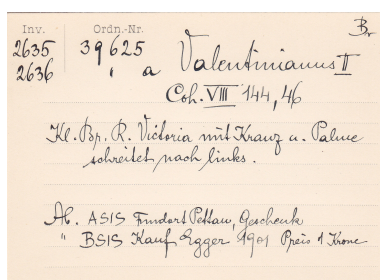 Br.
Inv. Ordn.-Nr.
2635 39625 Valentinianus II
2636 " a
Coh. VIII 144, 46
Kl. Br. R. Victoria mit Kranz u. Palme
schreitet nach links.
Ab. ASIS Fundort Pettau, Geschenk
" BSIS Kauf Egger 1901 Preis 1 Krone